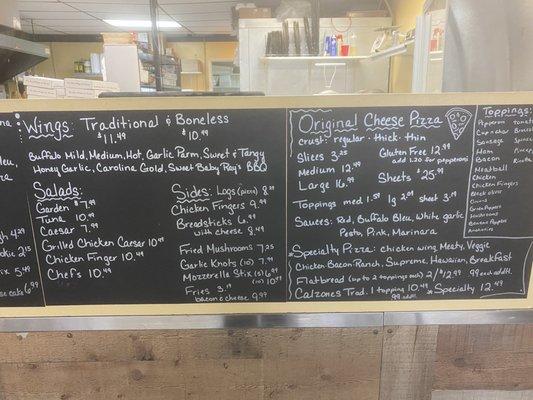 Wings: Traditional & Boneless
$11.49 $10.99
Buffalo Mild, Medium, Hot, Garlic Parm, Sweet & Tangy
Honey Garlic, Carolina Gold, Sweet Baby Ray's BBQ
Salads:
Garden $7.99
Tuna 10.99
Caesar 7.99
Grilled Chicken Caesar 10.99
Chicken Finger 10.49
Chef's 10.49
Sides: Logs
Chicken Fingers 9.99
Breadsticks 6.99
with cheese 8.49
Fried Mushrooms 7.25
Garlic Knots (10) 7.99
Mozzerella Stix (6) 6.99
(10) 10.99
Fries 3.99
bacon & cheese 9.99
Original Cheese Pizza
crust: regular - thick - thin
Slices 3.25
Medium 12.49
Large 16.99
Gluten Free 12.99
add 1.20 for pepperoni
Sheets $25.99
Toppings med 1.59 lg 2.09 sheet 3.19
Sauces: Red, Buffalo Bleu, White garlic
Pesto, Pink, Marinara
*Specialty Pizza: chicken wing Meaty, Veggie
Chicken Bacon Ranch, Supreme, Hawaiian, Breakfast
Flatbread (up to 2 toppings each) 2/$12.99 .99 each addtl.
Calzones Trad. 1 topping 10.49 *Specialty 12.49
.99 addtl.
Toppings:
Pepperoni
Cup n char
Sausage
Ham
Bacon
Meatball
Chicken
Chicken Fingers
Black olive
Onions
Green Peppers
Mushrooms
Banana Peppers
Anchovies